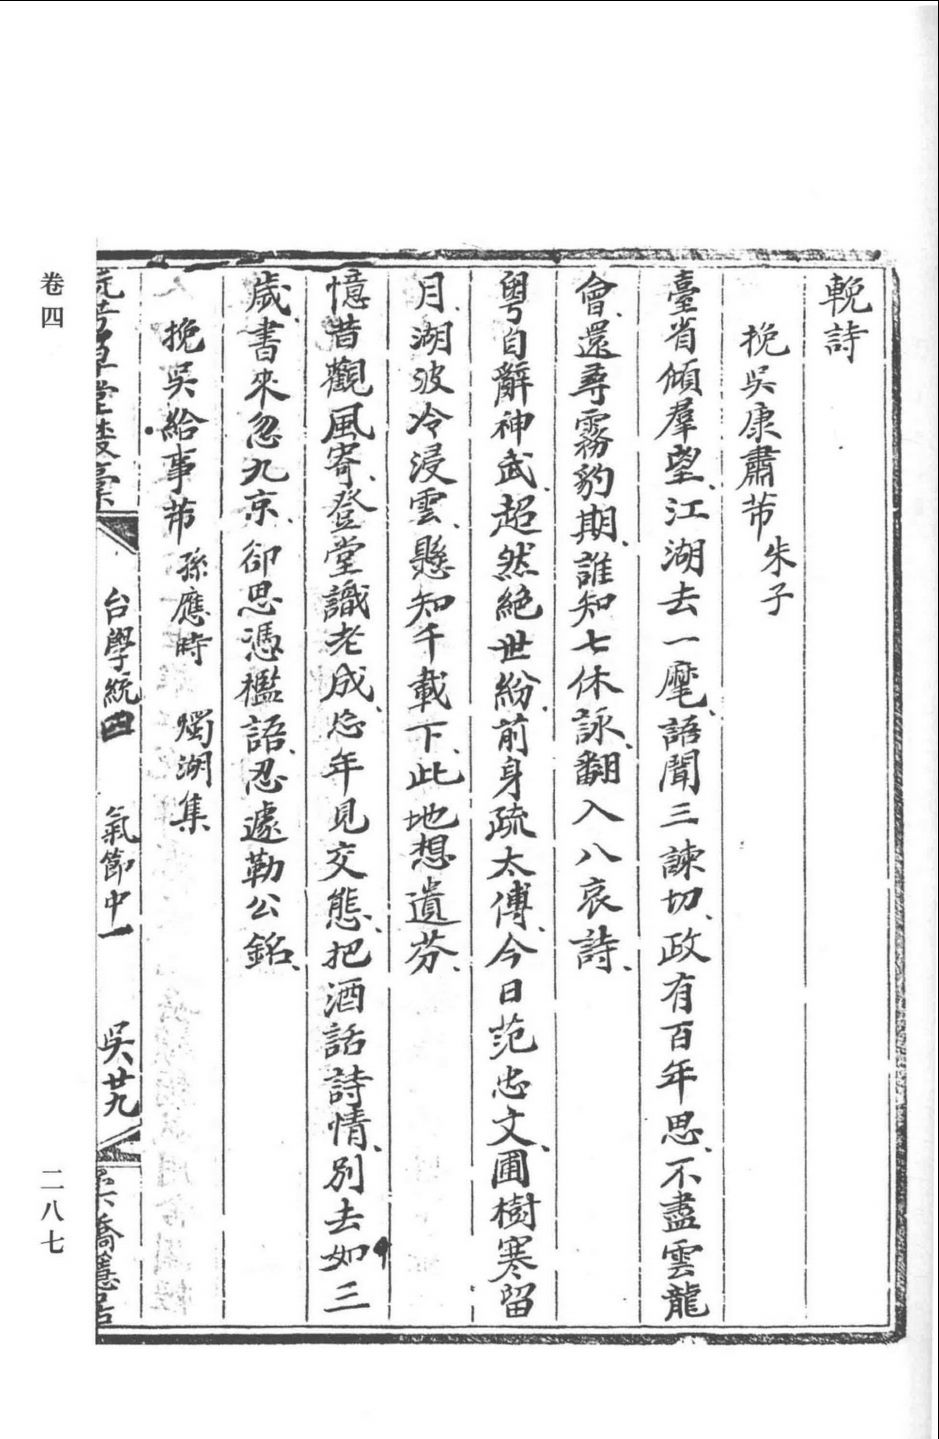 輓詩
挽吳康肅芾 朱子
臺省傾羣望、江湖去一麾、語聞三諫切、政有百年思、不盡雲龍
會、還尋霧豹期、誰知七休詠、翻入八哀詩、
粵自辭神武、超然絕世紛、前身疏太傅、今日范忠文、圃樹寒留
月、湖波冷浸雲、懸知千載下、此地想遺芬、
憶昔觀風寄、登堂識老成、忘年見交態、把酒話詩情、別去如三
歲、書來忽九京、卻思憑檻語、忍遽勒公銘、
挽吳給事芾 孫應時 燭湖集
台學統四 氣節中一 吳廿九
卷四
二八七